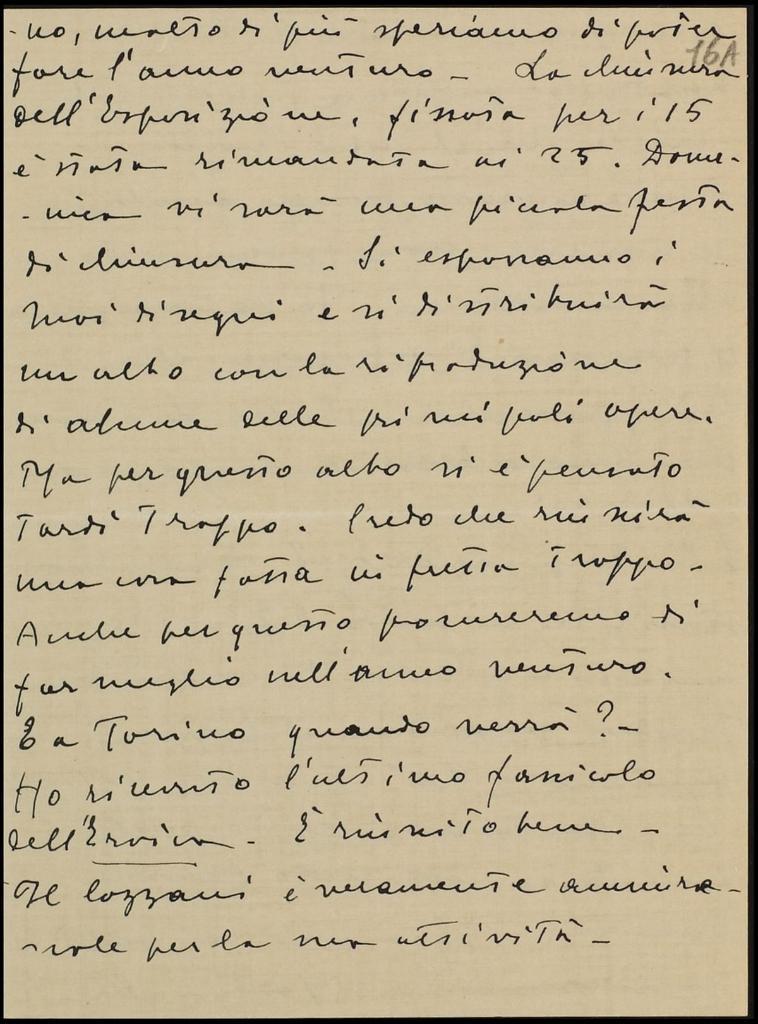 -no, molto di più speriamo di poter
16A
fare l'anno venturo - La chiusura
dell'Esposizione, fissata per i 15
è stata rimandata ai 25. Dome-
-nica vi sarà una piccola festa
di chiusura - Si esporranno i
suoi disegni e si distribuirà
un albo con la riproduzione
di alcune delle principali opere.
Ma per questo albo si è pensato
tardi troppo. Credo che riuscirà
una cosa fatta in fretta troppo -
Anche per questo procureremo di
far meglio nell'anno venturo.
E a Torino quando verrà? -
Ho ricevuto l'ultimo fascicolo
dell'Eroica - È riuscito bene -
Il Cozzani è veramente ammire-
-vole per la sua attività -